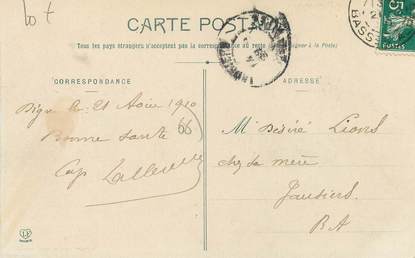 60 t
CARTE POSTALE
Tous les pays étrangers n'acceptent pas la correspondance au recto (à la Poste)
CORRESPONDANCE
ADRESSE
Digne le 21 Août 1910
Bonne santé
66
Cap
Mr Désiré Lions
chez sa mère
Jausiers
B A
BASS
5
POSTES